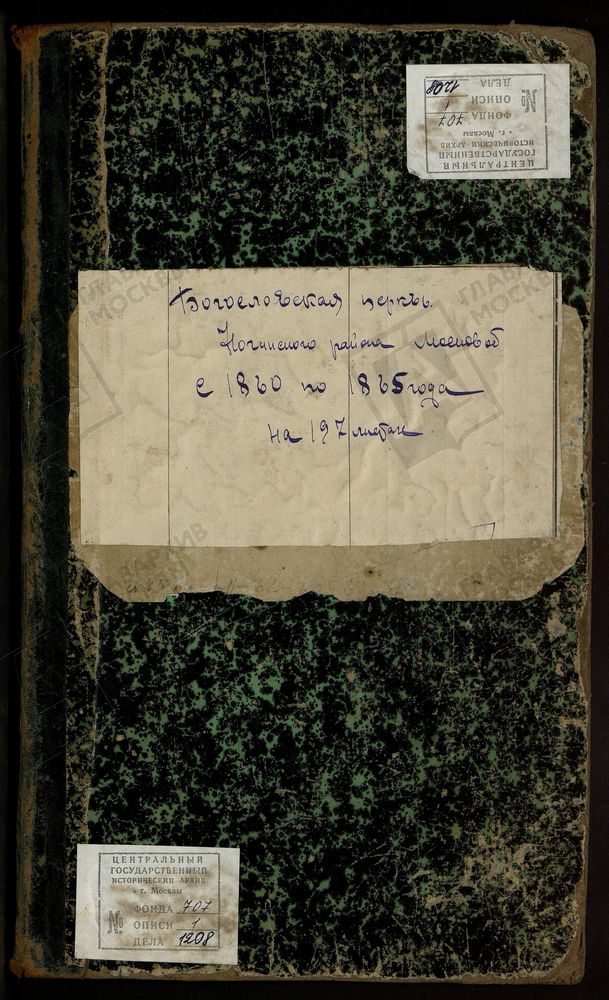 ЦЕНТРАЛЬНЫЙ
ГОСУДАРСТВЕННЫЙ
ИСТОРИЧЕСКИЙ АРХИВ
г. Москвы
№
ФОНДА 707
ОПИСИ 1
ДЕЛА 1208
Богословская церковь
Ногинского района Москов об
с 1860 по 1865 года
на 197 листах
ЦЕНТРАЛЬНЫЙ
ГОСУДАРСТВЕННЫЙ
ИСТОРИЧЕСКИЙ АРХИВ
г. Москвы
№
ФОНДА 707
ОПИСИ 1
ДЕЛА 1208